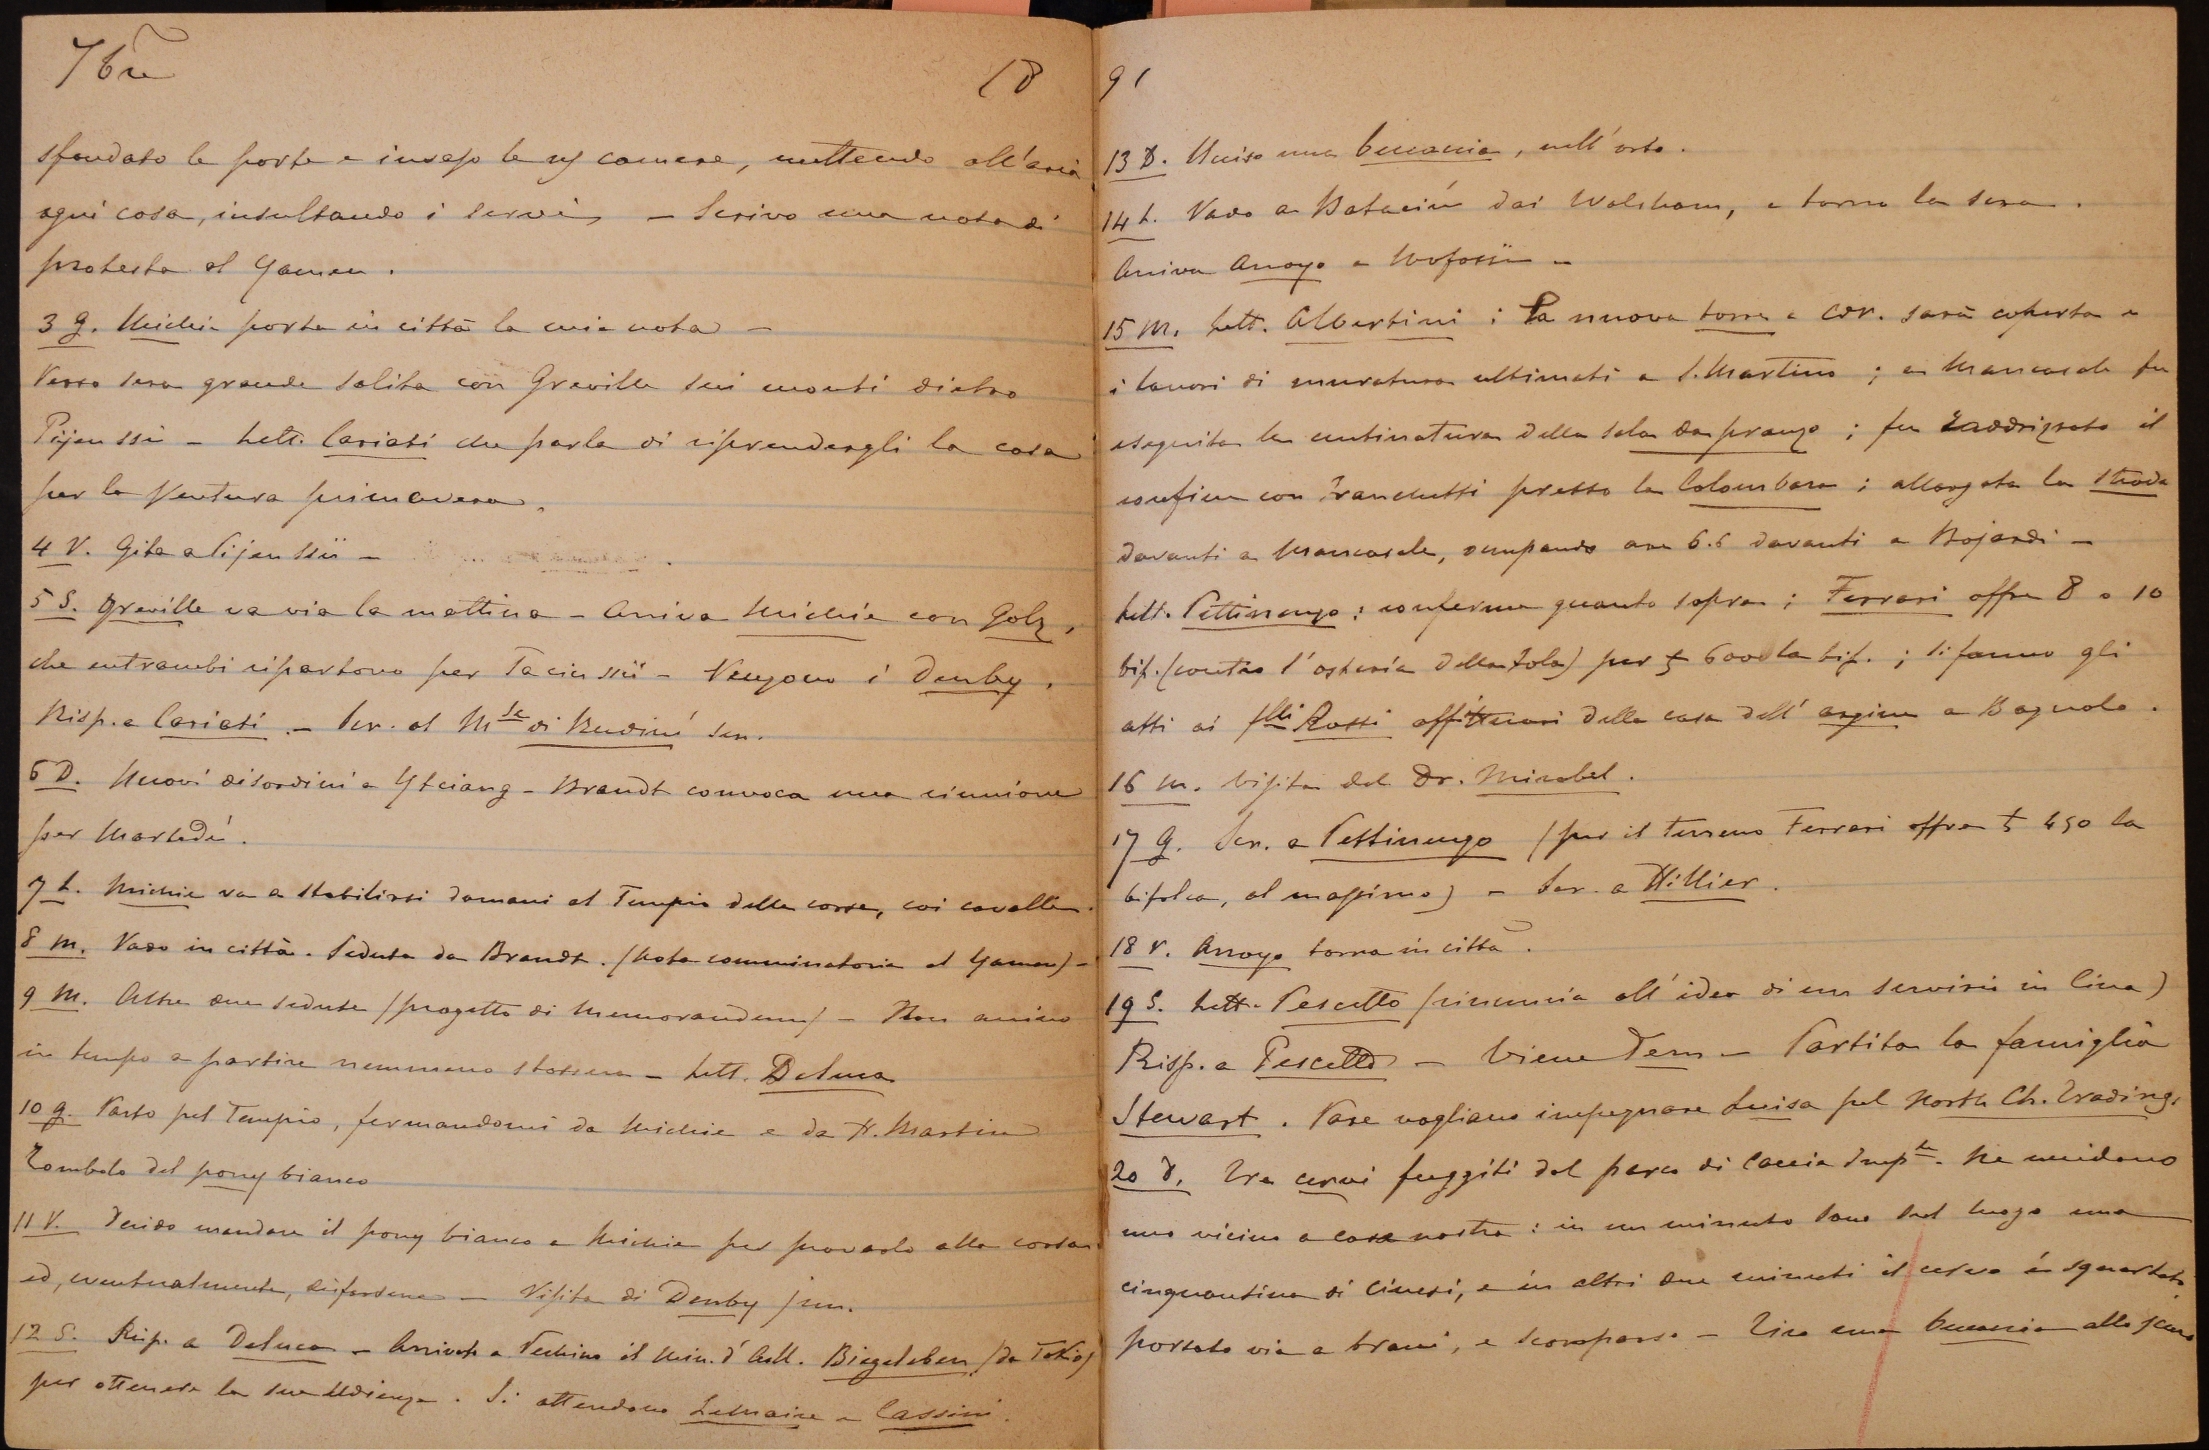 7bre 18
sfondato le porte e invaso le ns camere, mettendo all'aria
ogni cosa, insultando i servi, – Scrivo una nota di
protesta al Yamen.
3 G. Michie porta in città la mia nota –
Verso sera grande salita con Greville sui monti dietro
Pijenssü – Lett. Cariati che parla di riprendergli la casa
per la ventura primavera.
4 V. Gita a Pijenssü –
5 S. Greville va via la mattina – Arriva Michie con Golz,
che entrambi ripartono per Taciussü – Vengono i Denby.
Risp. a Cariati. – Scr. al Mse di Rudinì sen.
6 D. Nuovi disordini a Yciang – Brandt convoca una riunione
per Martedì.
7 L. Michie va a stabilirsi domani al Tempio delle corse, coi cavalli.
8 M. Vado in città. Seduta da Brandt. (Nota comminatoria al Yamen) –
9 M. Altre due sedute (progetto di Memorandum) – Non arrivo
in tempo a partire nemmeno stassera – Lett. Deluca
10 G. Parto pel Tempio, fermandomi da Michie e da H. Martin
Tombola del pony bianco
11 V. Decido mandare il pony bianco a Michie per provarlo alla corsa
ed, eventualmente, disfarsene – Visita di Denby jun.
12 S. Risp. a Deluca – Arrivato a Pechino il Min. d'Aust. Biegeleben (da Tokio)
per ottenere la sua udienza. Si attendono Lemaire e Cassini.
91
13 D. Ucciso una beccaccia, nell'orto.
14 L. Vado a Bataciú dai Walsham, e torno la sera.
Arriva Arroyo a Wofossü –
15 M. Lett. Albertini: la nuova torre a Cor. sarà coperta e
i lavori di muratura ultimati a S. Martino; a Mancasale fu
eseguita la centinatura della sala da pranzo; fu raddrizzato il
confine con Franchetti presso la Colombara; allargata la strada
davanti a Mancasale, occupando are 6.6 davanti a Bojardi –
Lett. Pettinengo: conferma quanto sopra; Ferrari offre 8 o 10
bif. (contro l'osteria della Sola) per £ 600 la bif.; si fanno gli
atti ai flli Rossi affittuari della casa dell'argine a Bagnolo.
16 M. Visita del Dr. Mirabel.
17 G. Scr. a Pettinengo (per il terreno Ferrari offra £ 450 la
bifolca, al massimo) – Scr. a Hillier.
18 V. Arroyo torna in città.
19 S. Lett. Pescetto (rinuncia all'idea di un servizio in Cina)
Risp. a Pescetto – Viene Tem – Partita la famiglia
Stewart. Pare vogliano impegnare Luisa pel North Ch. Trading.
20 D. Tre cervi fuggiti dal parco di Caccia Imple. Ne uccidono
uno vicino a casa nostra: in un minuto sono sul luogo una
cinquantina di Cinesi, e in altri due minuti il cervo è squartato,
portato via a brani, e scomparso – Tiro una beccaccia allo scuro